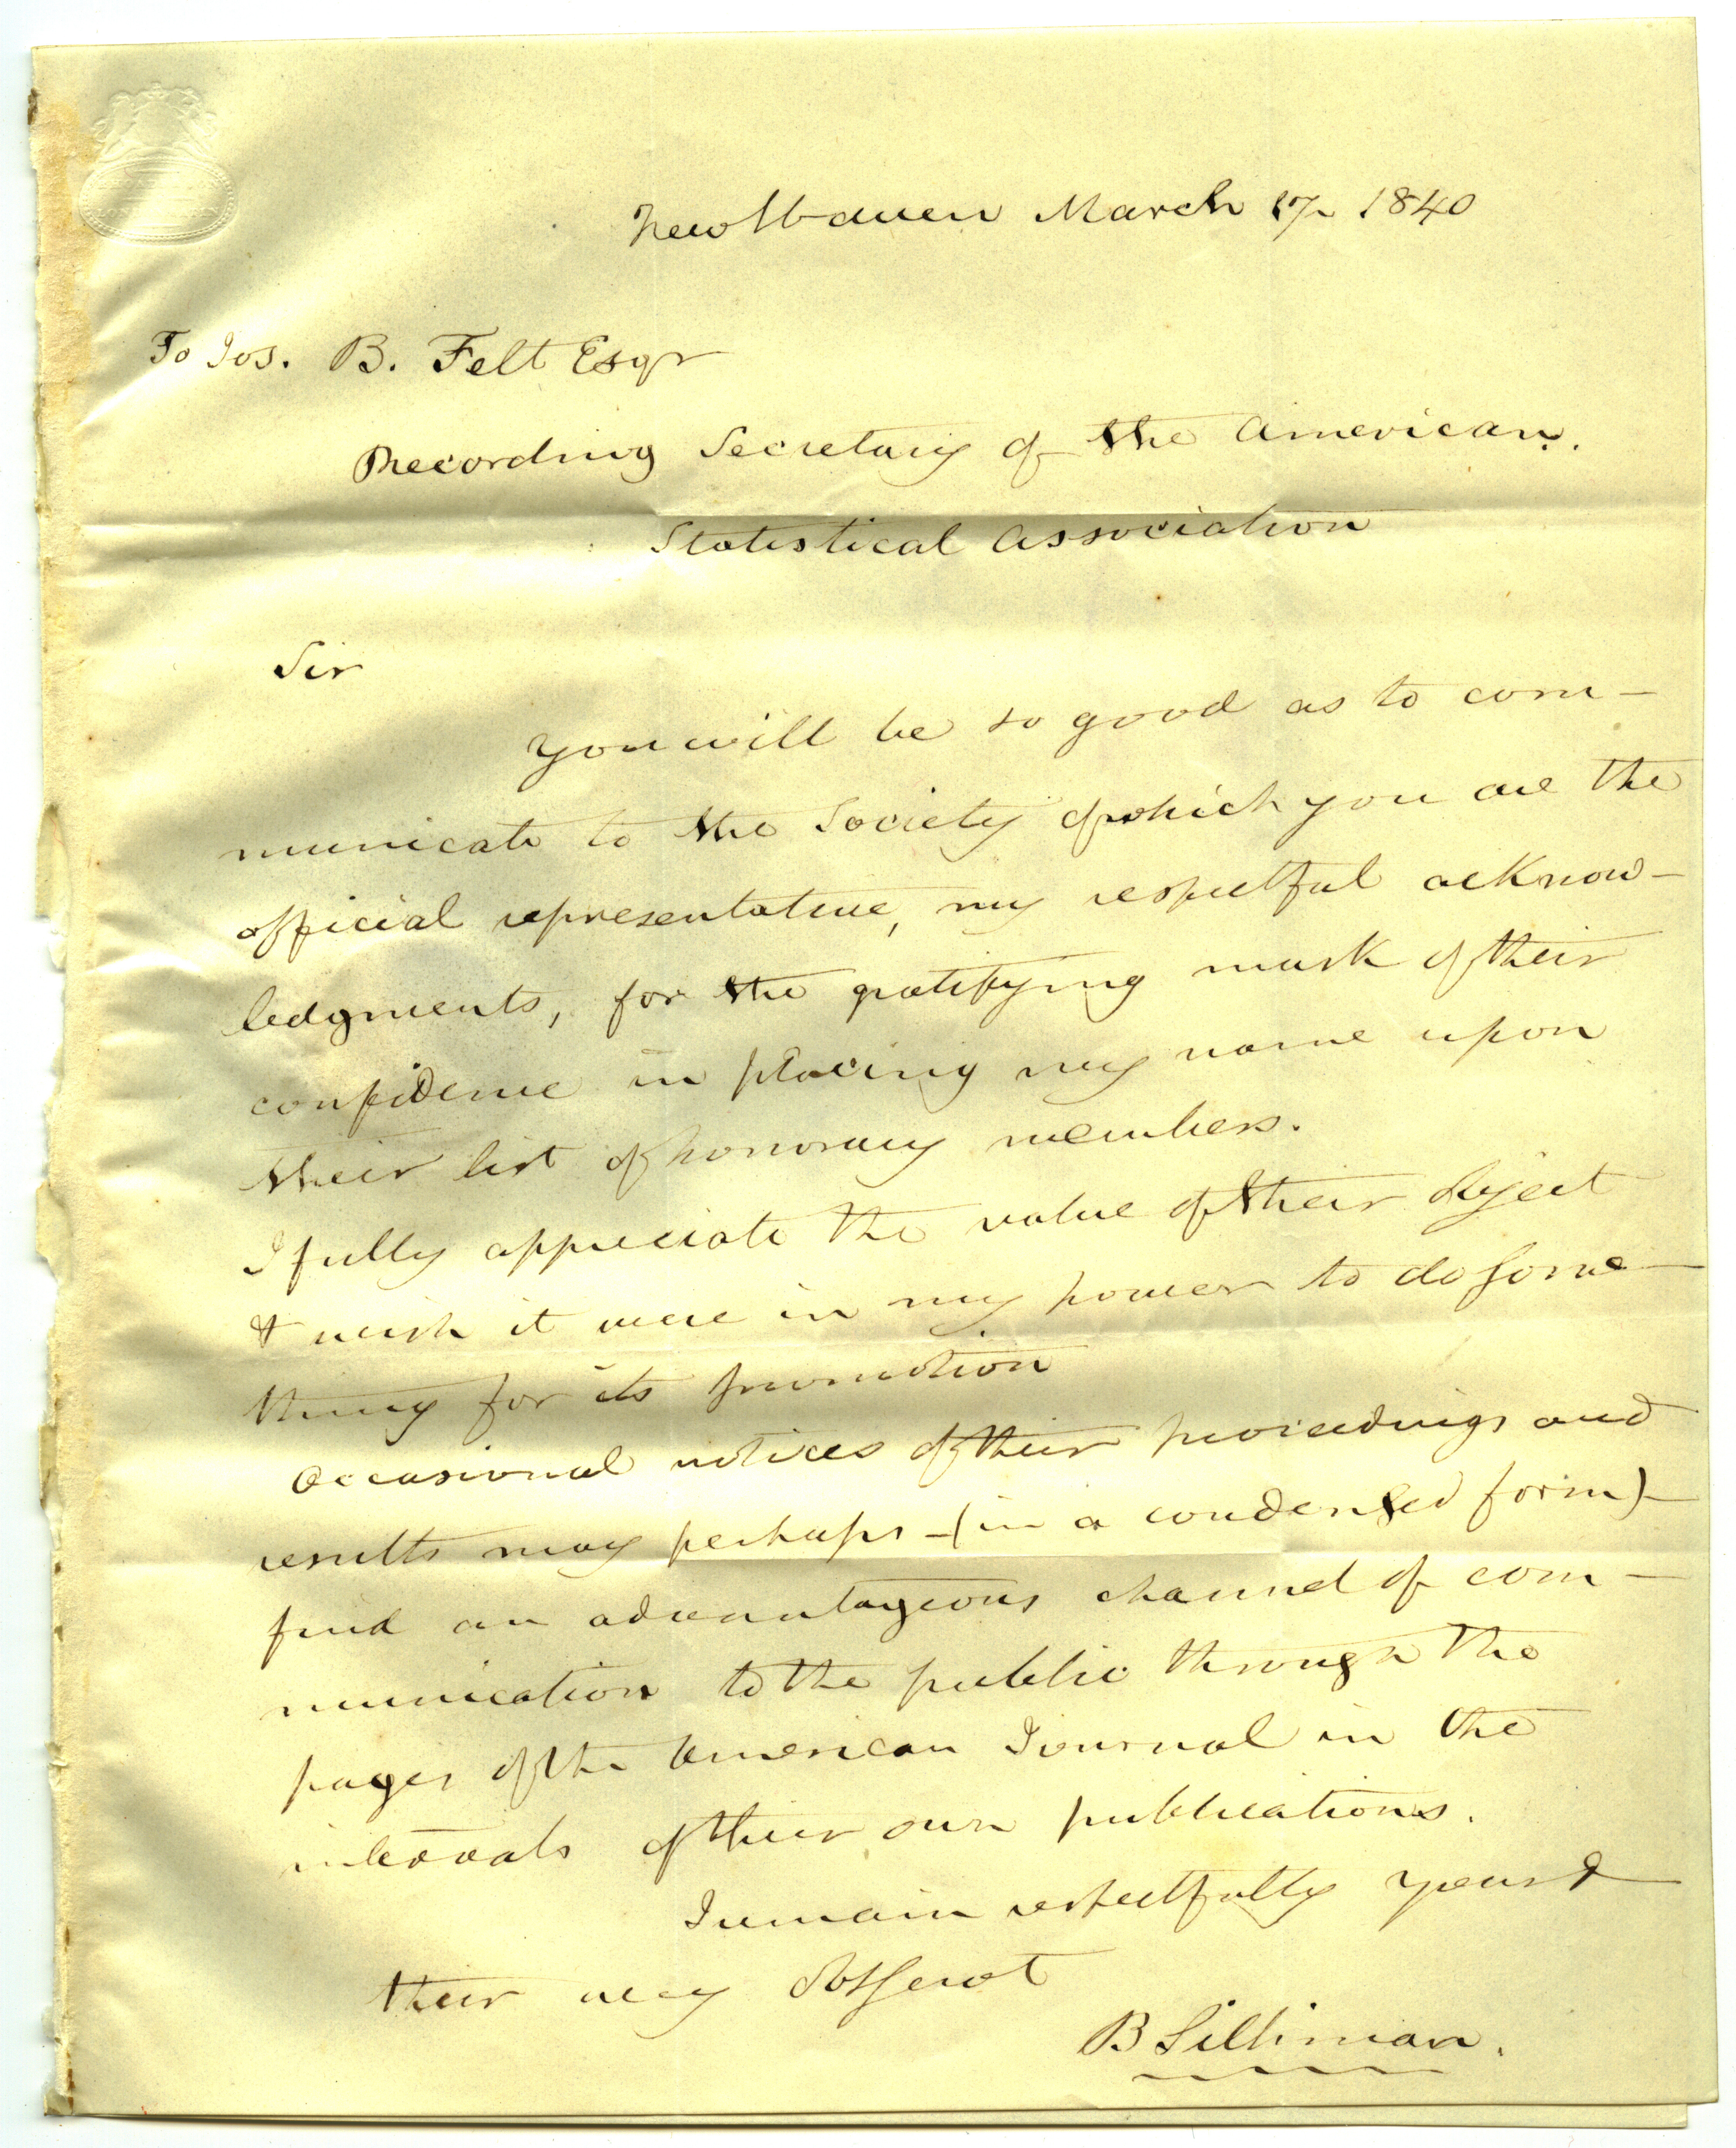 New Haven March 17 1840
To Jos. B. Felt Esqr
Recording Secretary of the American
Statistical Association
Sir
you will be so good as to com-
municate to the Society of which you are the
official representative, my respectful acknow-
ledgments, for the gratifying mark of their
confidence in placing my name upon
their list of honorary members.
I fully appreciate the value of their object
& wish it were in my power to do some-
thing for its promotion
Occasional notices of their proceedings and
results may perhaps - (in a condensed form) -
find an advantageous channel of com-
munication to the public through the
pages of the American Journal in the
intervals of their own publications.
I remain respectfully yours &
their very Obt Servt
B Silliman.